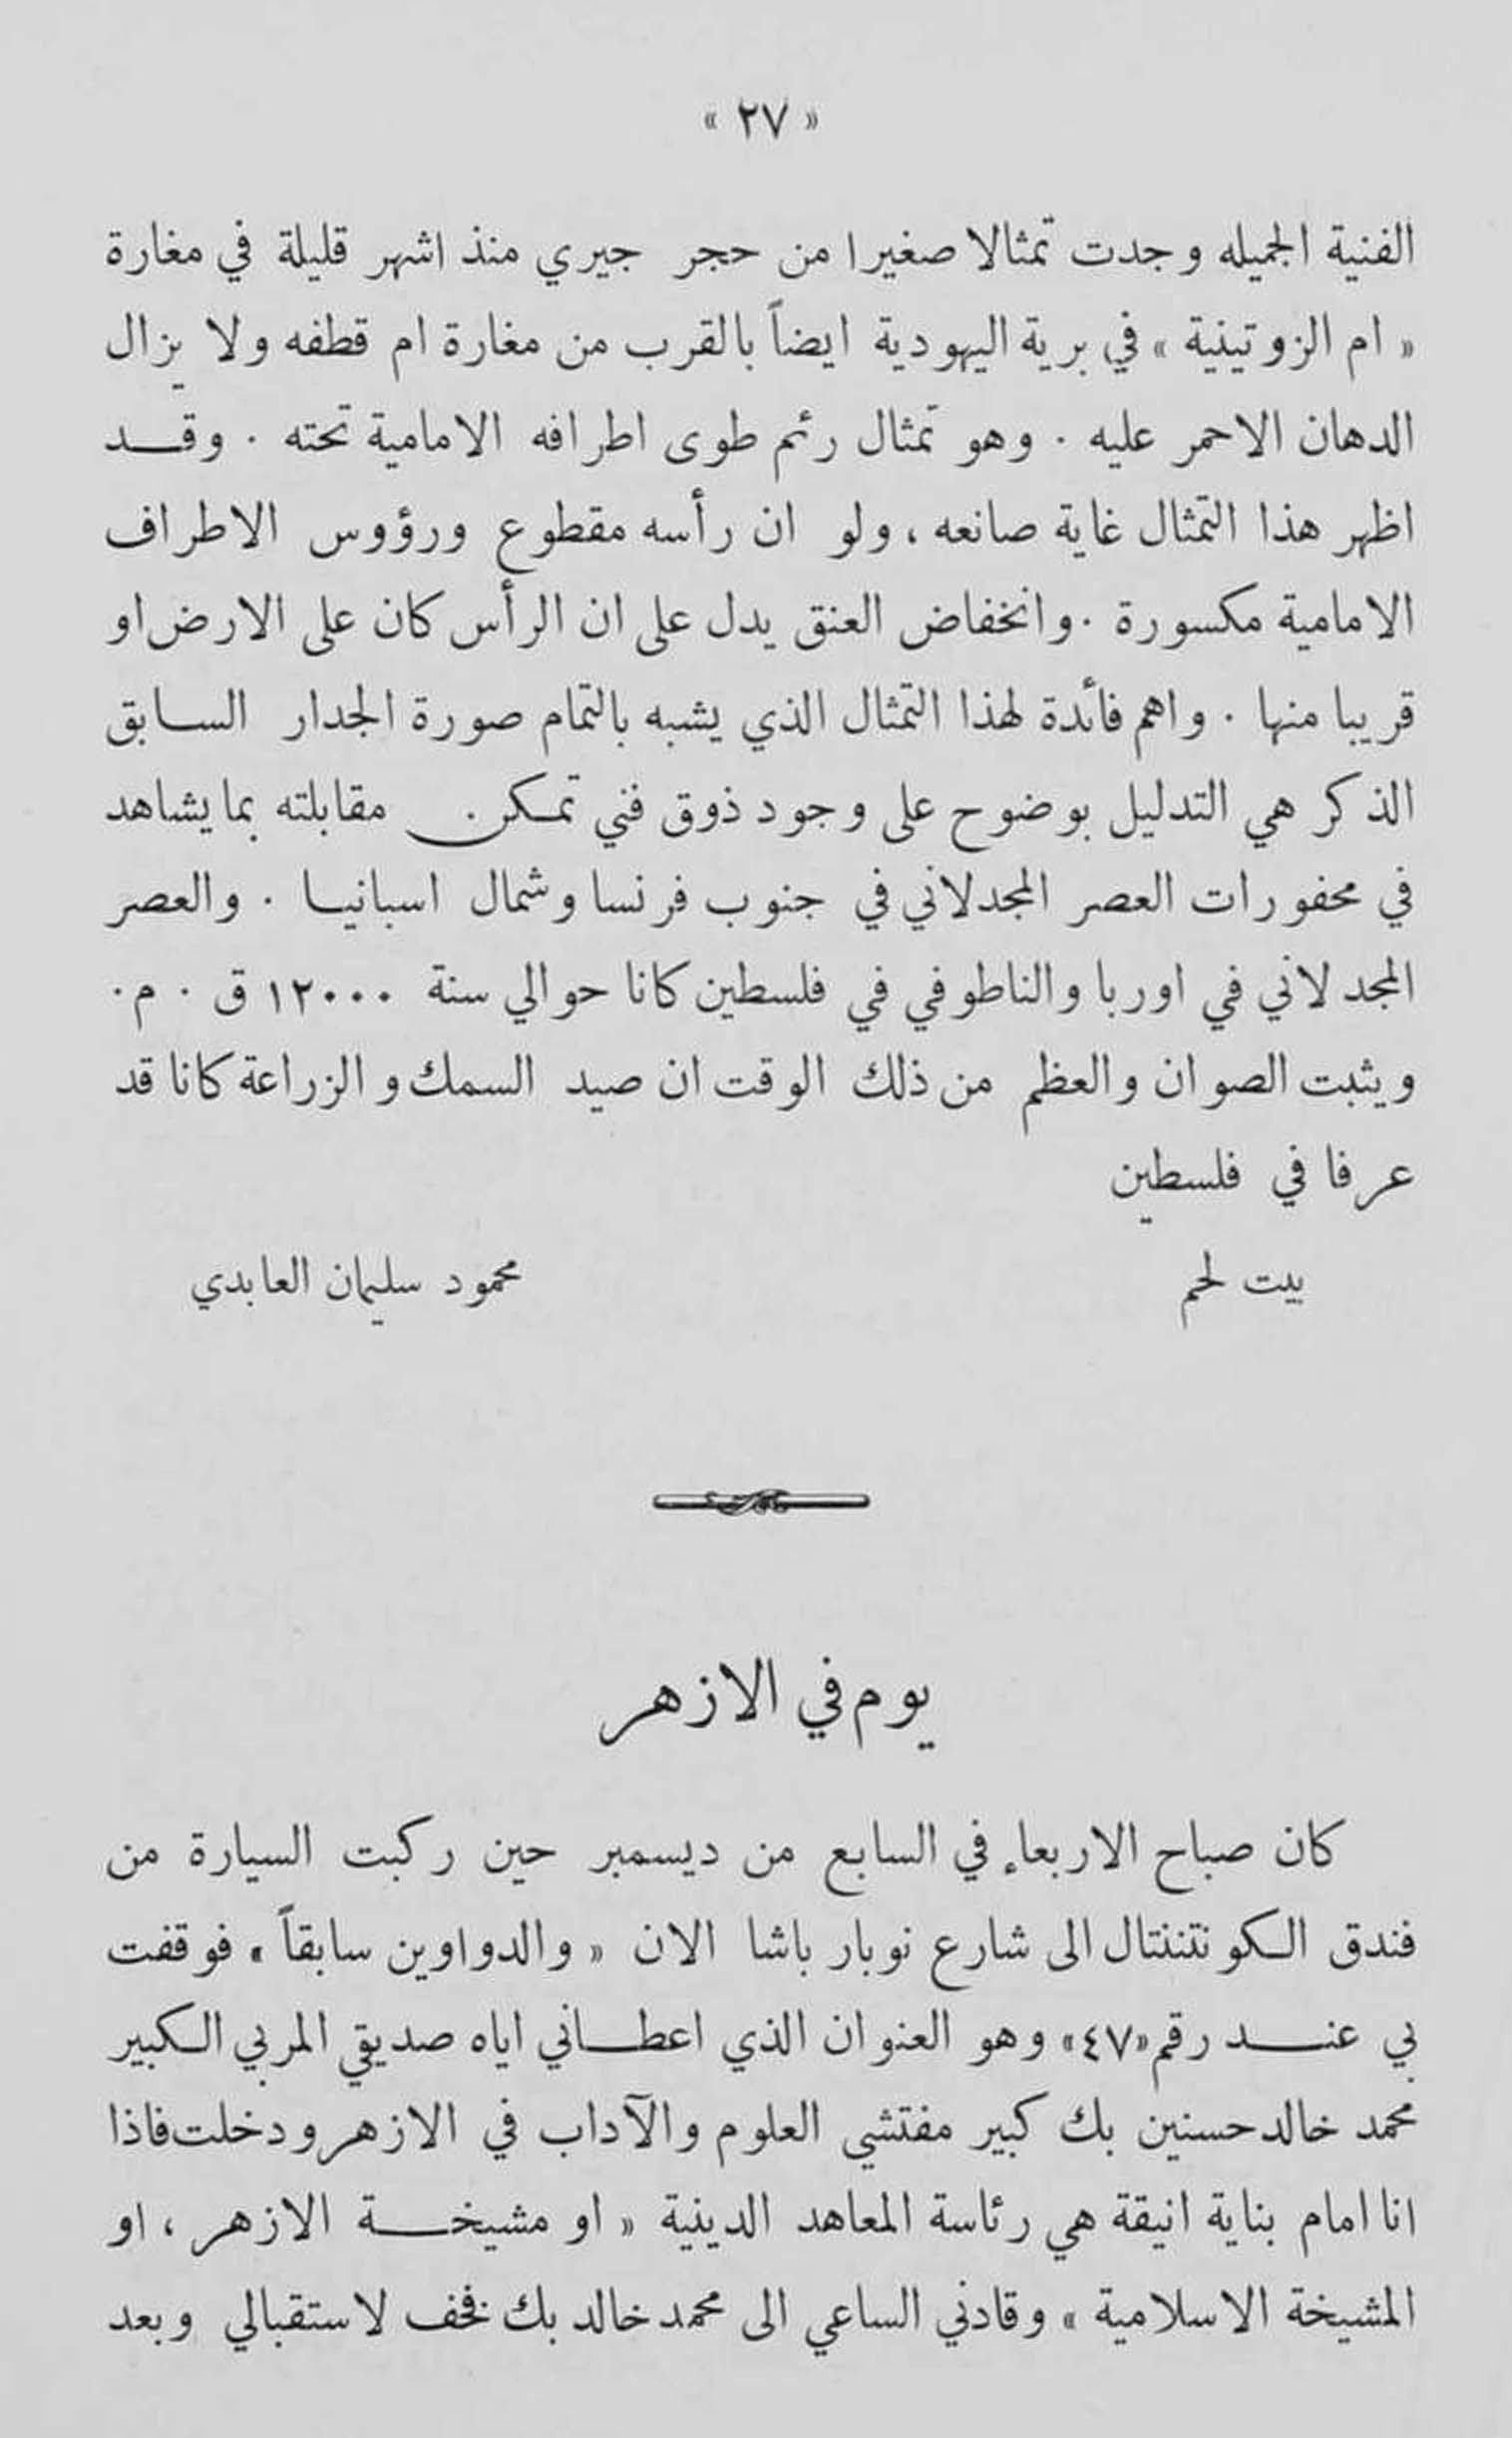 « ٢٧ »
الفنية الجميله وجدت تمثالا صغيرا من حجر جيري منذ اشهر قليلة في مغارة
« ام الزوتينية » في برية اليهودية ايضاً بالقرب من مغارة ام قطفه ولا يزال
الدهان الاحمر عليه . وهو تمثال رئم طوى اطرافه الامامية تحته . وقد
اظهر هذا التمثال غاية صانعه ، ولو ان رأسه مقطوع ورؤوس الاطراف
الامامية مكسورة . وانخفاض العنق يدل على ان الرأس كان على الارض او
قريبا منها . واهم فائدة لهذا التمثال الذي يشبه بالتمام صورة الجدار السابق
الذكر هي التدليل بوضوح على وجود ذوق فني تمكن مقابلته بما يشاهد
في محفورات العصر المجدلاني في جنوب فرنسا وشمال اسبانيا . والعصر
المجدلاني في اوربا والناطوفي في فلسطين كانا حوالي سنة ١٢٠٠٠ ق . م .
ويثبت الصوان والعظم من ذلك الوقت ان صيد السمك و الزراعة كانا قد
عرفا في فلسطين
بيت لحم محمود سليمان العابدي
يوم في الازهر
كان صباح الاربعاء في السابع من ديسمبر حين ركبت السيارة من
فندق الكونتننتال الى شارع نوبار باشا الان « والدواوين سابقاً » فوقفت
بي عند رقم «٤٧» وهو العنوان الذي اعطاني اياه صديقي المربي الكبير
محمد خالد حسنين بك كبير مفتشي العلوم والآداب في الازهر ودخلت فاذا
انا امام بناية انيقة هي رئاسة المعاهد الدينية « او مشيخة الازهر ، او
المشيخة الاسلامية » وقادني الساعي الى محمد خالد بك فخف لاستقبالي وبعد